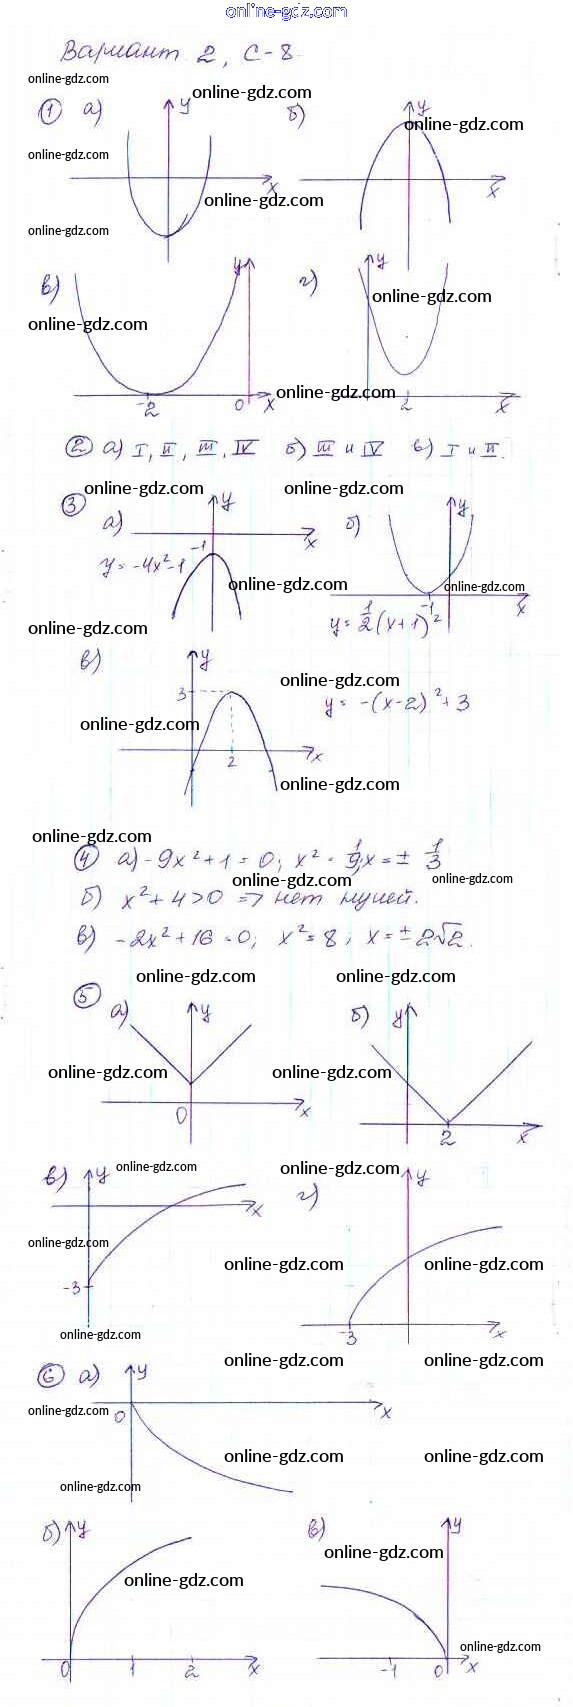 online-gdz.com
Вариант 2, С-8
online-gdz.com
online-gdz.com
① а) y б) y
online-gdz.com
online-gdz.com
x x
online-gdz.com
online-gdz.com
в) y г) y
online-gdz.com
online-gdz.com
online-gdz.com
-2 0 x 2 x
② а) I, II, III, IV б) III и IV в) I и II.
online-gdz.com online-gdz.com
③ а) y б) y
-1 x
y = -4x²-1
online-gdz.com online-gdz.com
-1 x
online-gdz.com
y = 1/2 (x+1)²
в) y
online-gdz.com
3 y = -(x-2)² + 3
online-gdz.com
2 x
online-gdz.com
online-gdz.com
④ а) -9x² + 1 = 0; x² = 1/9; x = ± 1/3
online-gdz.com online-gdz.com
б) x² + 4 > 0 => нет нулей.
в) -2x² + 16 = 0; x² = 8; x = ±2√2.
online-gdz.com online-gdz.com
⑤ а) y б) y
online-gdz.com online-gdz.com
0 x 2 x
в) y online-gdz.com online-gdz.com
г) y
x
online-gdz.com
online-gdz.com online-gdz.com
-3
online-gdz.com -3 x
online-gdz.com online-gdz.com
⑥ а) y
online-gdz.com
0 x
online-gdz.com online-gdz.com
online-gdz.com
б) y в) y
online-gdz.com
online-gdz.com
online-gdz.com
0 1 2 x -1 0 x